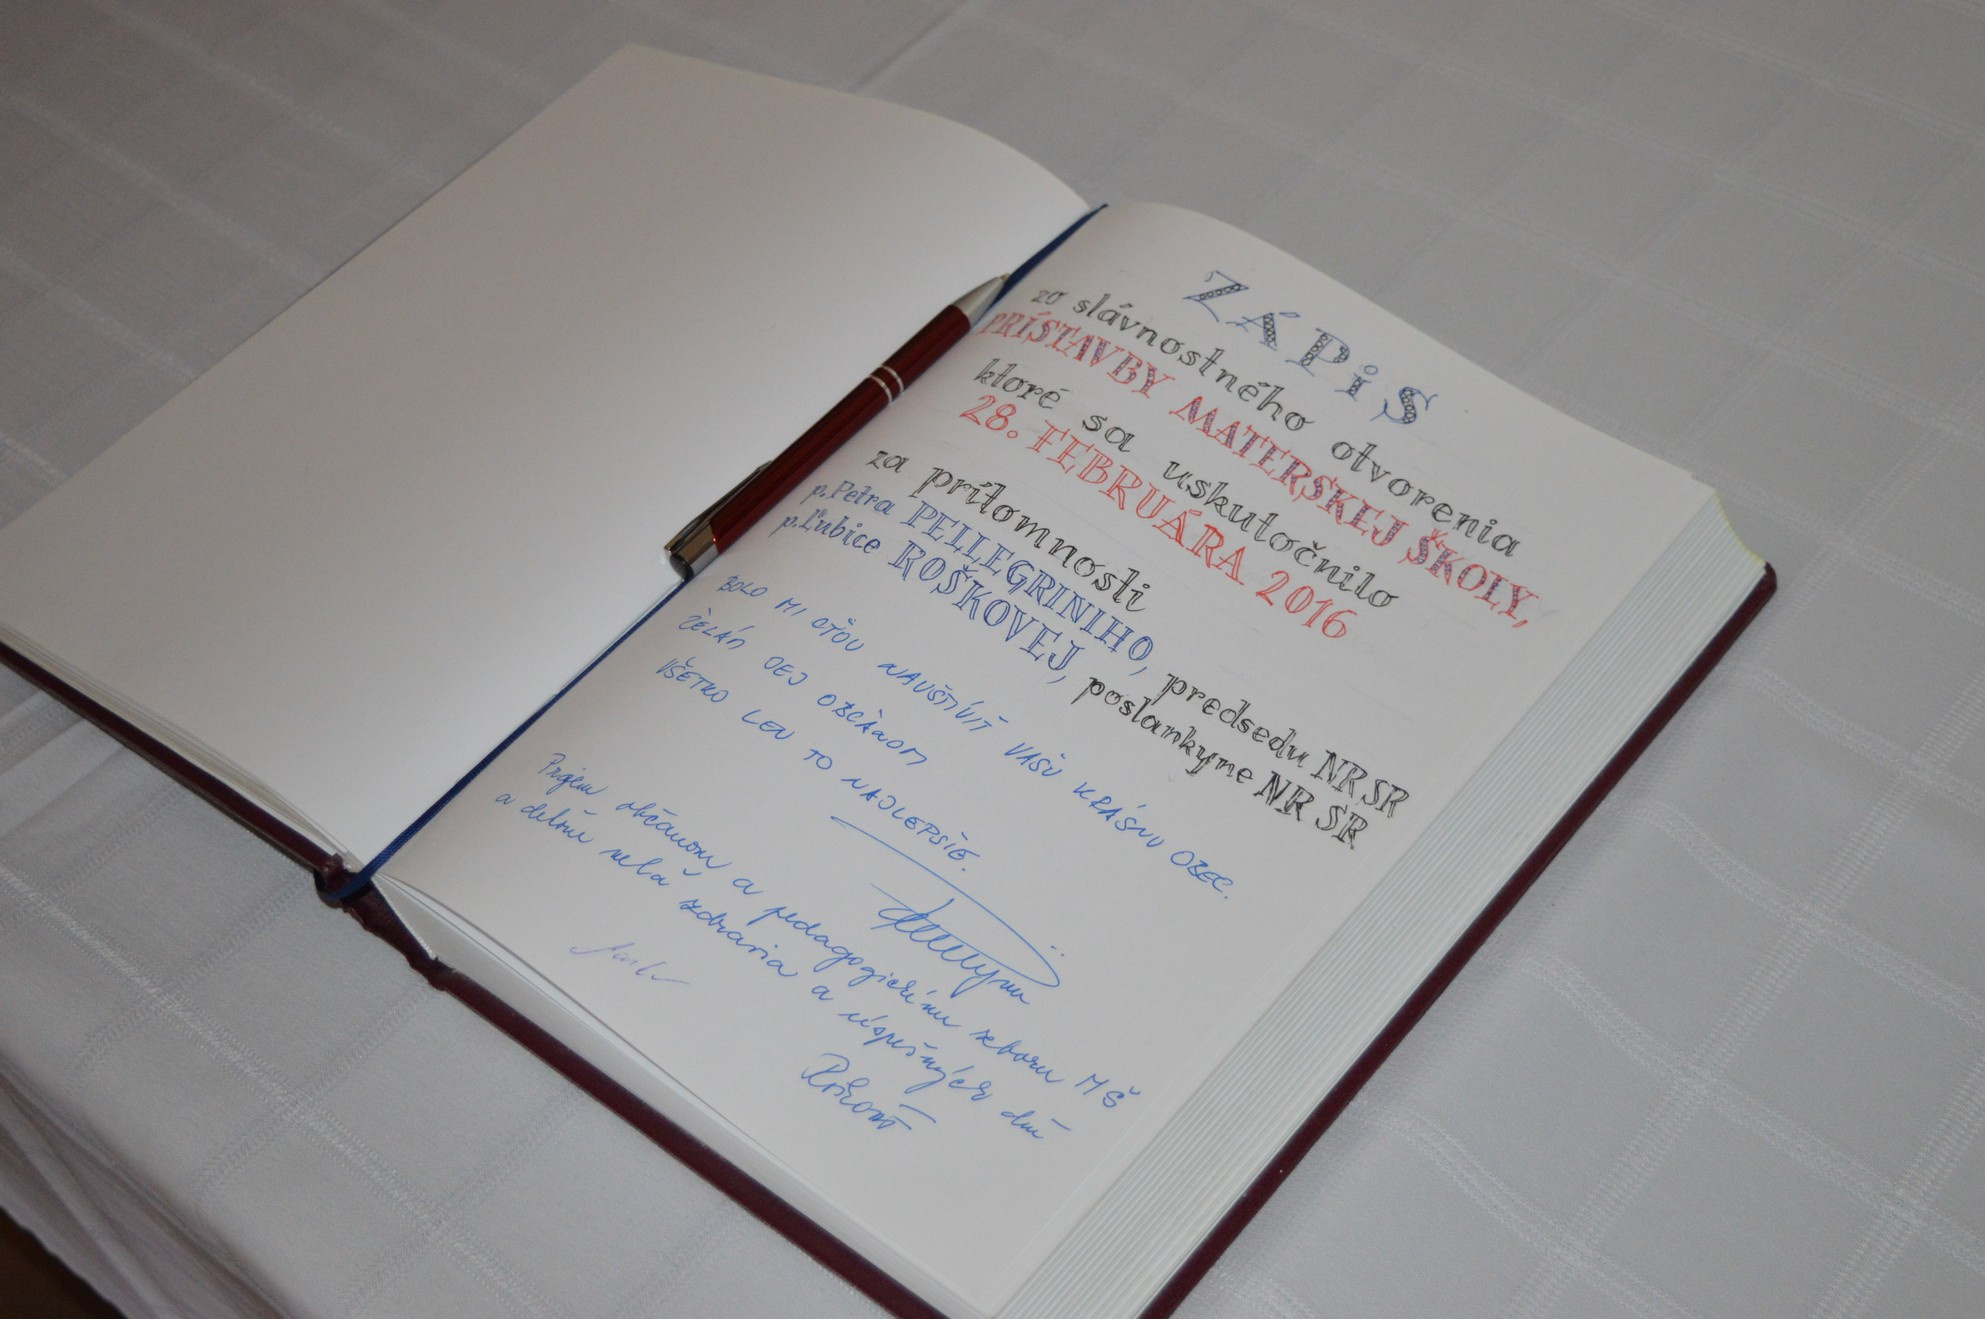 ZÁPiS
zo slávnostného otvorenia
PRÍSTAVBY MATERSKEJ ŠKOLY,
ktoré sa uskutočnilo
28. FEBRUÁRA 2016
za prítomnosti
p.Petra PELLEGRINIHO, predsedu NR SR
p.Ľubice ROŠKOVEJ, poslankyne NR SR
BOLO MI CŤOU NAVŠTÍVIŤ VAŠU KRÁSNU OBEC.
ŽELÁM JEJ OBČANOM
VŠETKO LEN TO NAJLEPŠIE.
Prajem občanom a pedagogickému zboru MŠ
a deťom veľa zdravia a úspešných dní